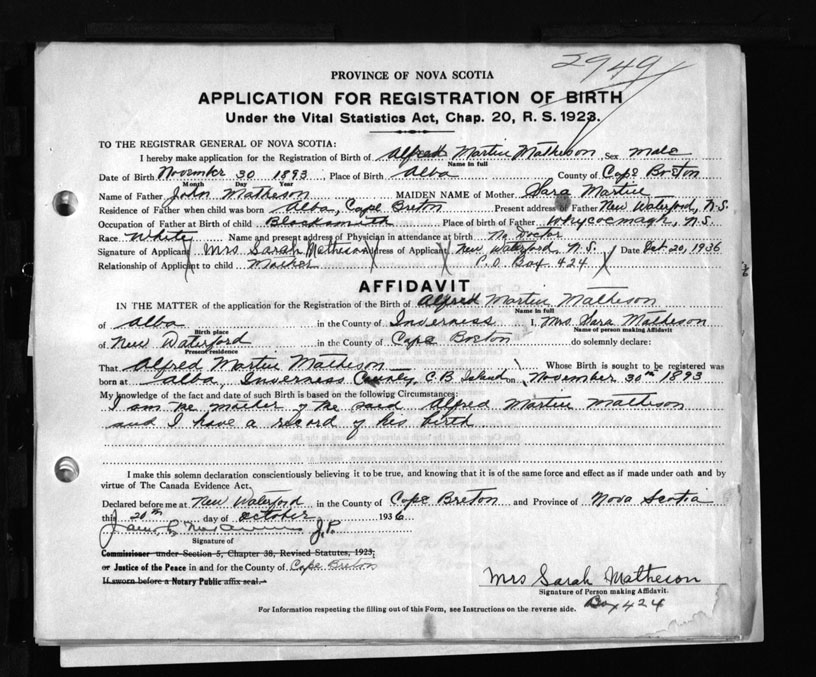 2949
PROVINCE OF NOVA SCOTIA
APPLICATION FOR REGISTRATION OF BIRTH
Under the Vital Statistics Act, Chap. 20, R. S. 1923.
TO THE REGISTRAR GENERAL OF NOVA SCOTIA:
I hereby make application for the Registration of Birth of Alfred Martin Matheson Sex male
Name in full
Date of Birth November 30 1893 Place of Birth Alba County of Cape Breton
Month Day Year
Name of Father John Matheson MAIDEN NAME of Mother Sara Martin
Residence of Father when child was born Alba, Cape Breton Present address of Father New Waterford, N.S.
Occupation of Father at Birth of child Blacksmith Place of birth of Father Whycocmagh, N.S.
Race White Name and present address of Physician in attendance at birth No doctor
Signature of Applicant Mrs Sarah Matheson Address of Applicant New Waterford, N.S. Date Oct 20, 1936
Relationship of Applicant to child Mother P.O. Box 424
AFFIDAVIT
IN THE MATTER of the application for the Registration of the Birth of Alfred Martin Matheson
Name in full
of Alba in the County of Inverness I, Mrs Sara Matheson
Birth place Name of person making Affidavit
of New Waterford in the County of Cape Breton do solemnly declare:
Present residence
That Alfred Martin Matheson Whose Birth is sought to be registered was
born at Alba, Inverness County, C.B. Island on November 30th 1893
My knowledge of the fact and date of such Birth is based on the following Circumstances:
I am the mother of the said Alfred Martin Matheson
and I have a record of his birth
I make this solemn declaration conscientiously believing it to be true, and knowing that it is of the same force and effect as if made under oath and by
virtue of The Canada Evidence Act.
Declared before me at New Waterford in the County of Cape Breton and Province of Nova Scotia
this 20th day of October 1936
J.P.
Signature of
Commissioner under Section 5, Chapter 38, Revised Statutes, 1923;
or Justice of the Peace in and for the County of Cape Breton
If sworn before a Notary Public affix seal.
Mrs Sarah Matheson
Signature of Person making Affidavit.
Box 424
For Information respecting the filling out of this Form, see Instructions on the reverse side.